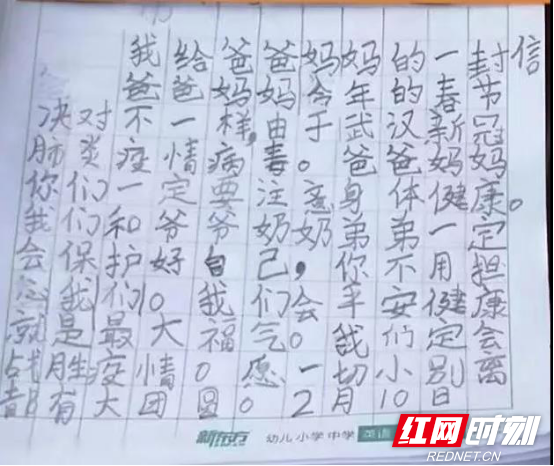 我给爸爸妈妈的一封信
爸爸妈妈今年的春节
决对不一样,由于武汉新冠
肺炎疫情病毒。爸爸妈妈
你们一定要注意身体健康。
我们和爷爷奶奶弟弟一定
会保护好自己,你不用担
心我们。我们会平安健康
就是最大福气。我们定会
战胜疫情。愿一切小别离
都有大团圆。2月10日
新东方 幼儿 小学 中学 英语
红网时刻
REDNET.CN